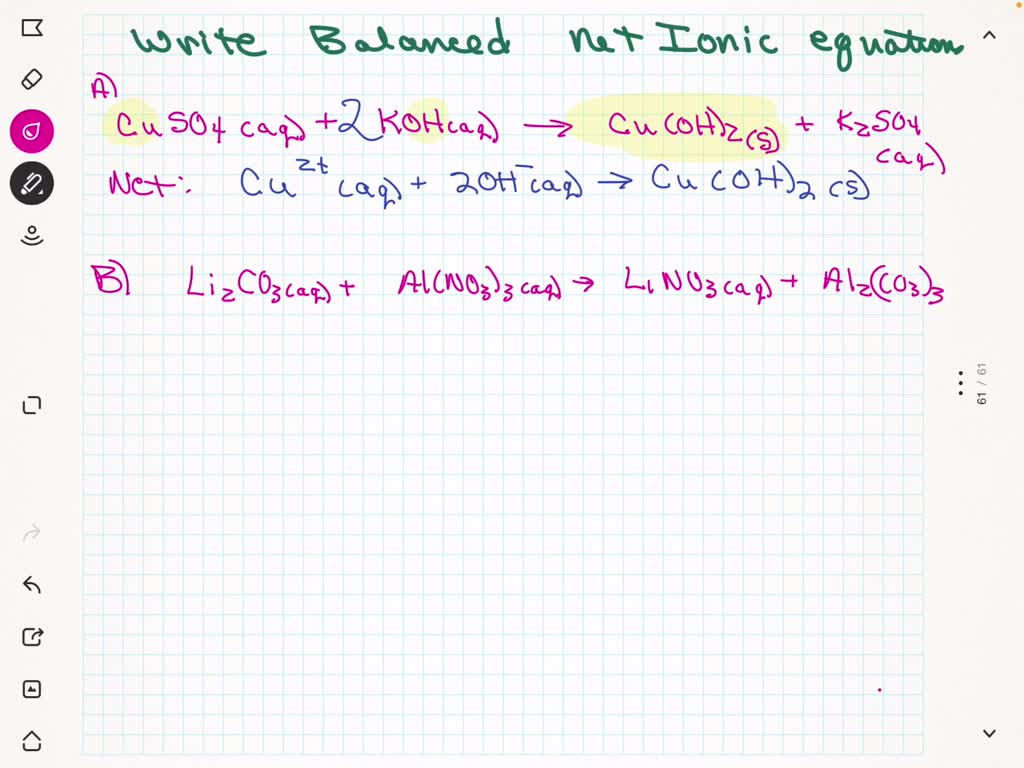 Write Balanced Net Ionic equations
A)
CuSO4 (aq) + 2 KOH(aq) → Cu(OH)2(s) + K2SO4
(aq)
Net: Cu2+ (aq) + 2OH-(aq) → Cu(OH)2 (s)
B) Li2CO3(aq) + Al(NO3)3(aq) → LiNO3(aq) + Al2(CO3)3
61 / 61